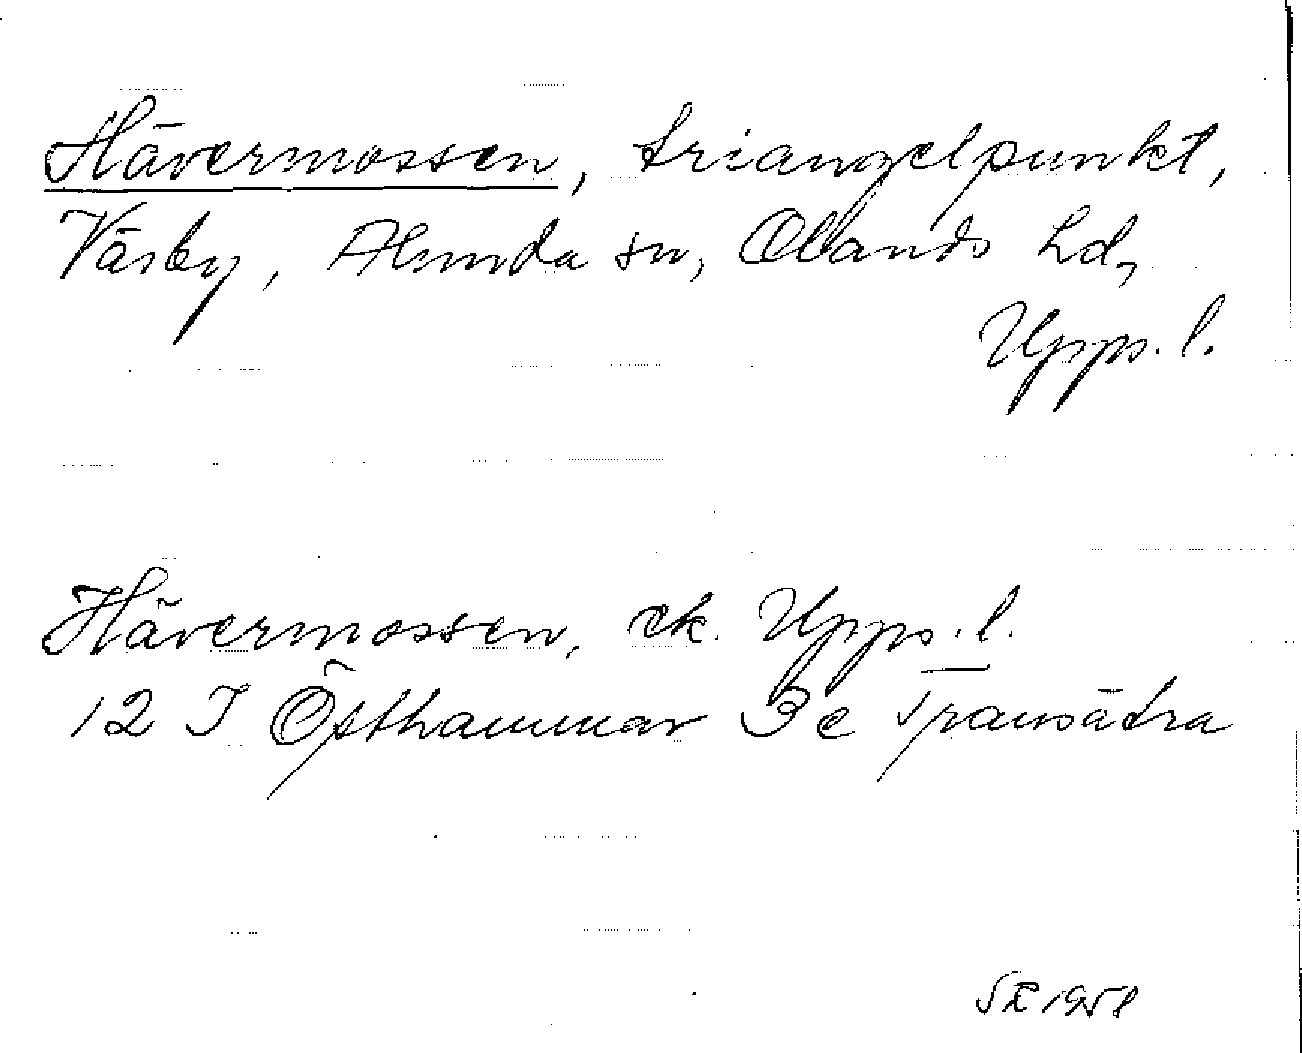 Hävermossen, triangelpunkt,
Väsby, Alunda sn, Olands hd,
Upps. l.
Hävermossen, ek. Upps. l.
12 I Östhammar 3 c Transätra
SE 1958